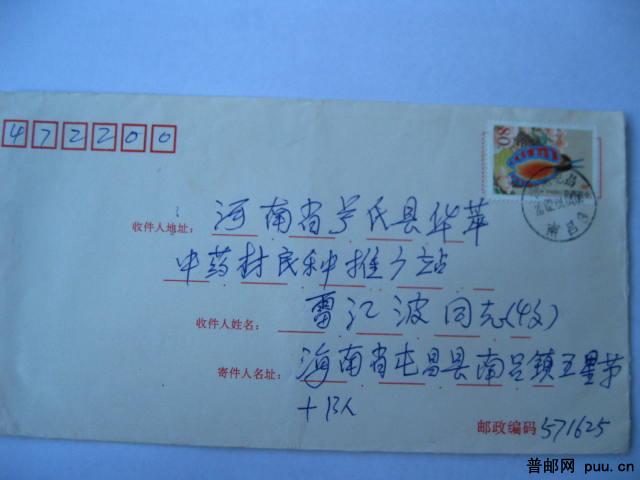 472200
80
收件人地址: 河南省卢氏县华草
中药材良种推广站
收件人姓名: 雷江波同志(收)
寄件人名址: 海南省屯昌县南吕镇五星第
十队
邮政编码 571625
普邮网 puu.cn